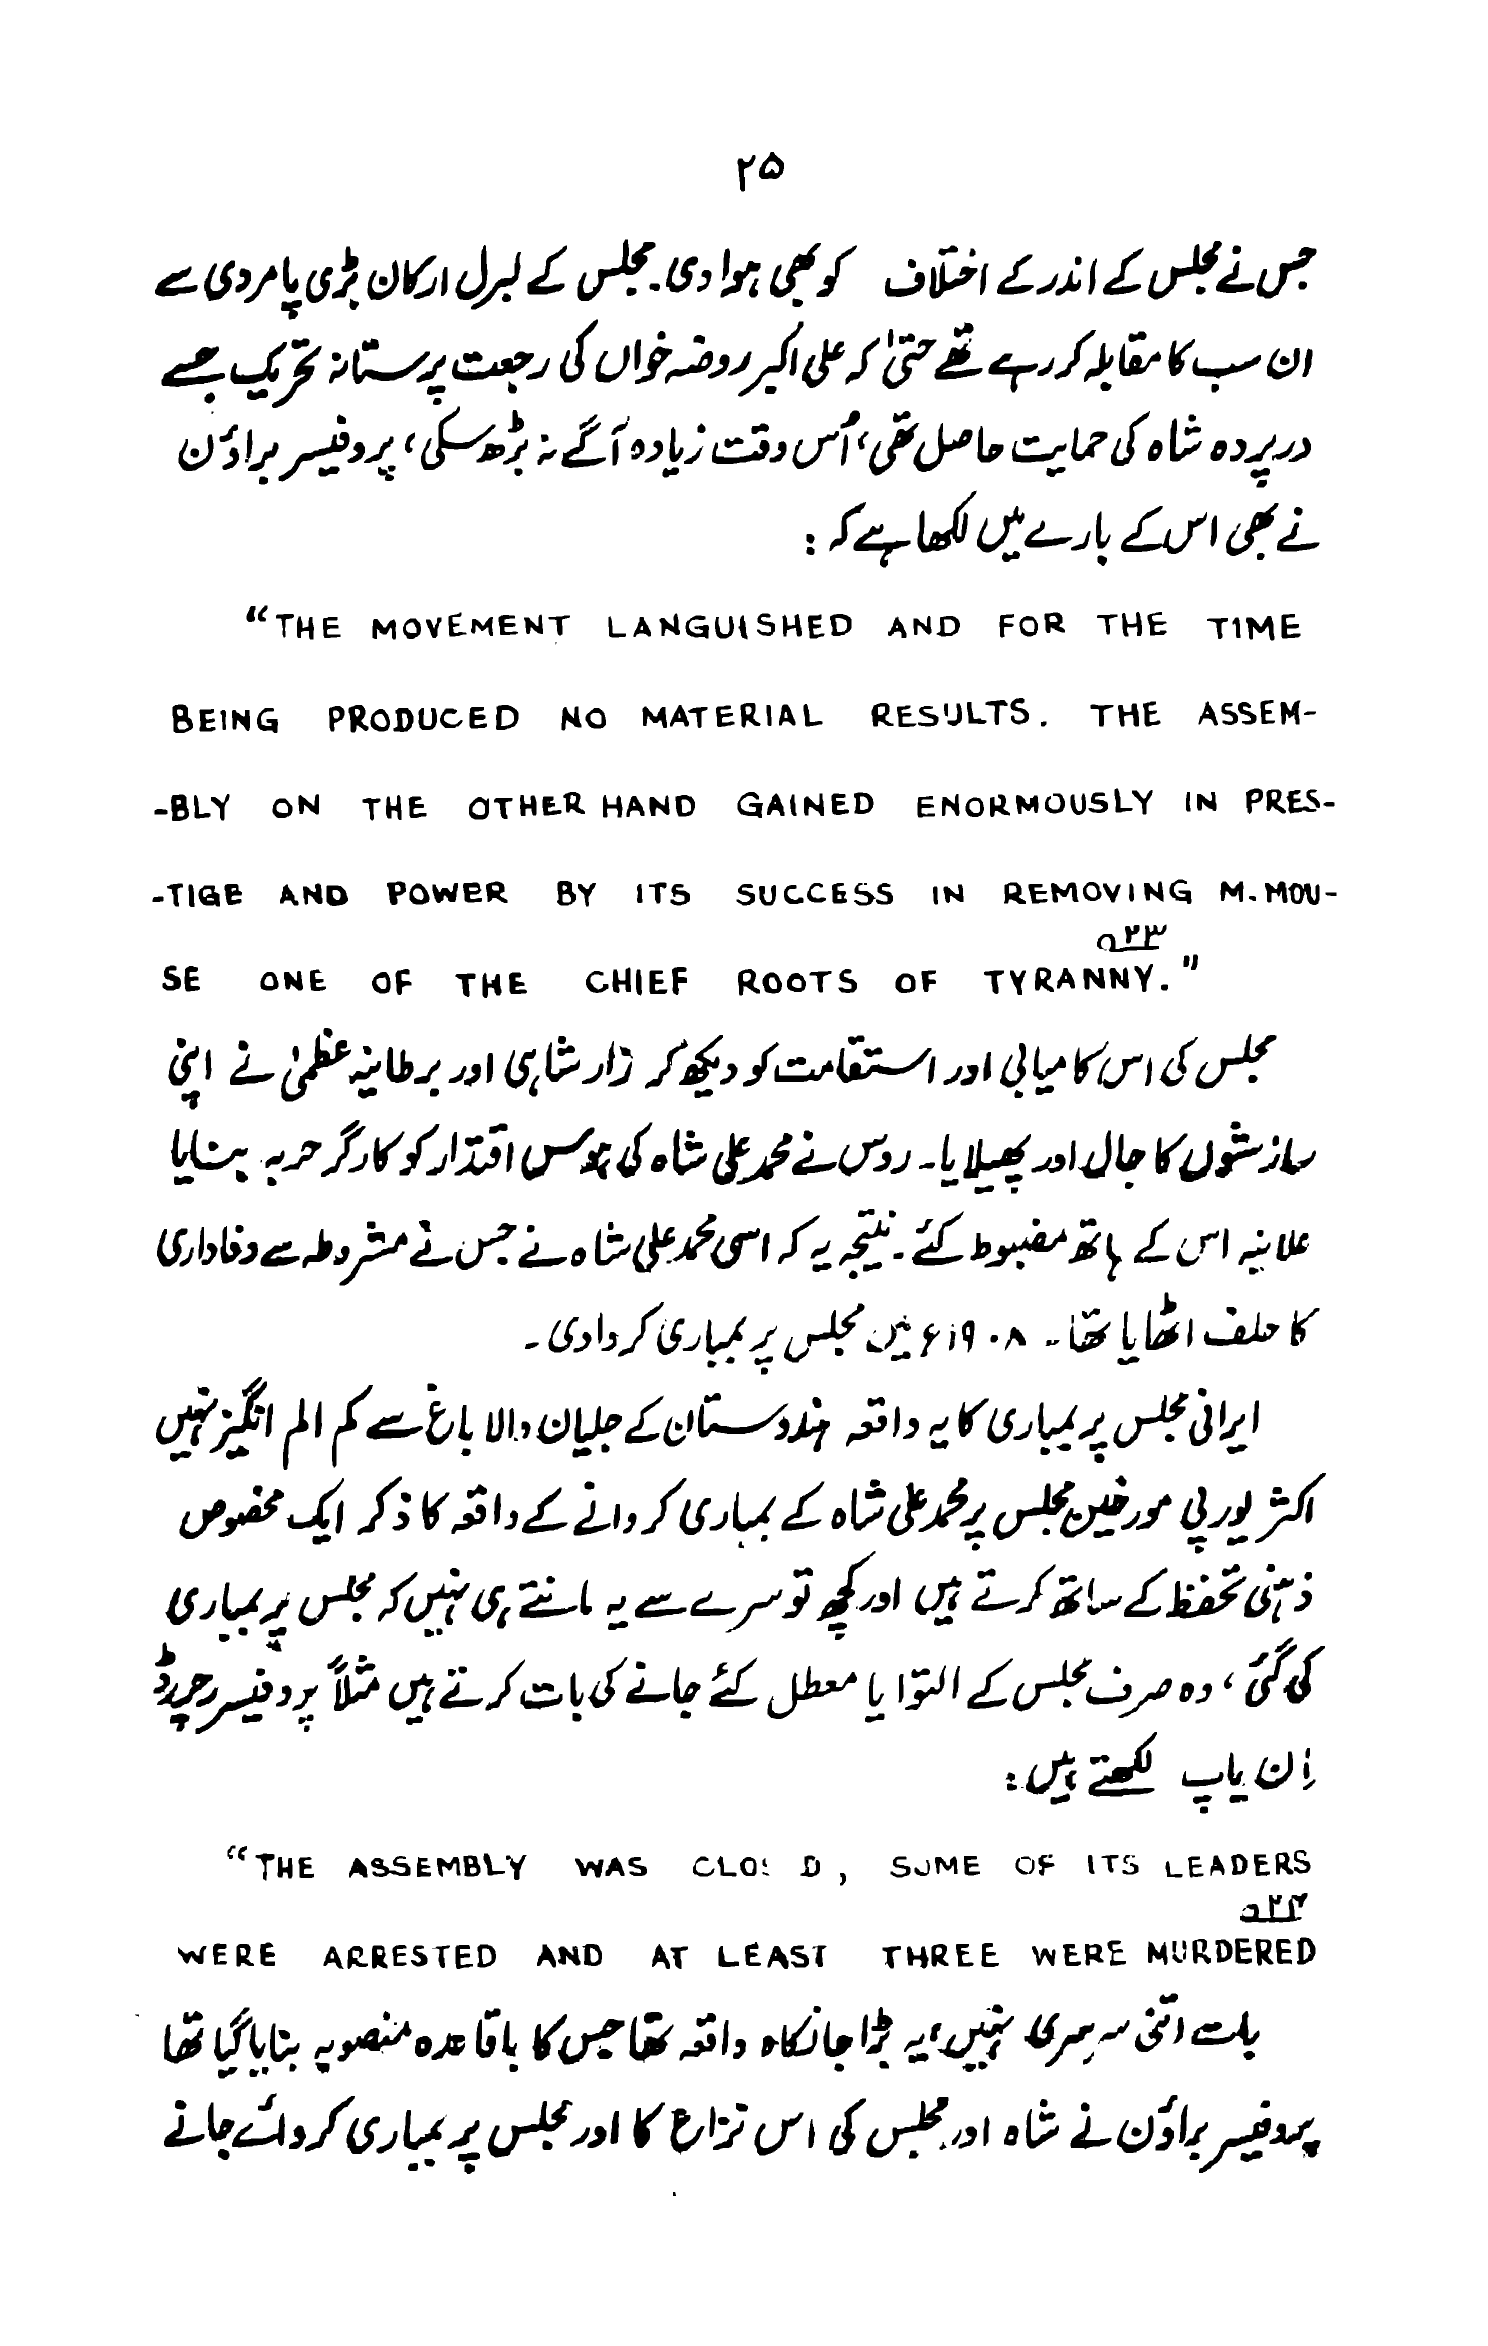 ۲۵
جس نے مجلس کے اندر کے اختلاف کو بھی ہوا دی۔ مجلس کے لبرل ارکان بڑی پامردی سے
ان سب کا مقابلہ کر رہے تھے حتیٰ کہ علی اکبر روضہ خواں کی رجعت پرستانہ تحریک جسے
درپردہ شاہ کی حمایت حاصل تھی، اُس وقت زیادہ آگے نہ بڑھ سکی، پروفیسر براؤن
نے بھی اس کے بارے میں لکھا ہے کہ :
“THE MOVEMENT LANGUISHED AND FOR THE TIME
BEING PRODUCED NO MATERIAL RESULTS. THE ASSEM-
-BLY ON THE OTHER HAND GAINED ENORMOUSLY IN PRES-
-TIGE AND POWER BY ITS SUCCESS IN REMOVING M. MOU-
SE ONE OF THE CHIEF ROOTS OF TYRANNY.” ۲۳؎
مجلس کی اس کامیابی اور استقامت کو دیکھ کر زار شاہی اور برطانیہ عظمیٰ نے اپنی
سازشوں کا جال اور پھیلایا۔ روس نے محمد علی شاہ کی ہوس اقتدار کو کارگر حربہ بنایا
علانیہ اس کے ہاتھ مضبوط کئے۔ نتیجہ یہ کہ اسی محمد علی شاہ نے جس نے مشروطہ سے وفاداری
کا حلف اٹھایا تھا۔ ۱۹۰۸ء میں مجلس پر بمباری کروادی۔
ایرانی مجلس پر بمباری کا یہ واقعہ ہندوستان کے جلیان والا باغ سے کم الم انگیز نہیں
اکثر یورپی مورخین مجلس پر محمد علی شاہ کے بمباری کروانے کے واقعہ کا ذکر ایک مخصوص
ذہنی تحفظ کے ساتھ کرتے ہیں اور کچھ تو سرے سے یہ مانتے ہی نہیں کہ مجلس پر بمباری
کی گئی، وہ صرف مجلس کے التوا یا معطل کئے جانے کی بات کرتے ہیں مثلاً پروفیسر رچرڈ
اِن یاپ لکھتے ہیں:
“THE ASSEMBLY WAS CLOSED, SOME OF ITS LEADERS
WERE ARRESTED AND AT LEAST THREE WERE MURDERED ۲۴؎
بات اتنی سرسری نہیں، یہ بڑا جانکاہ واقعہ تھا جس کا باقاعدہ منصوبہ بنایا گیا تھا
پروفیسر براؤن نے شاہ اور مجلس کی اس نزاع کا اور مجلس پر بمباری کروائے جانے